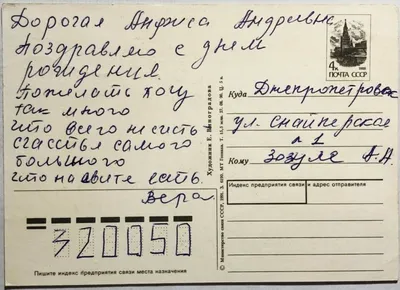 Дорогая Анфиса Андреевна
Поздравляю с днем
рождения.
Пожелать хочу
так много
что всего не счесть
счастья самого
большого
что на свете есть.
Вера
4к
ПОЧТА СССР
Куда Днепропетровск
ул. Снайперская
№ 1
Кому Зозуле А.А.
Индекс предприятия связи и адрес отправителя
Художник Е. Виноградова
© Министерство связи СССР.
320050
Пишите индекс предприятия связи места назначения